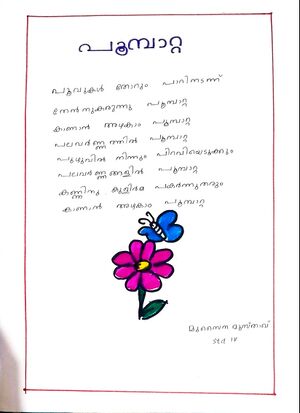 പൂമ്പാറ്റ
പൂവുകൾ തോറും പാറിനടന്ന്
തേൻനുകരുന്നു പൂമ്പാറ്റ
കാണാൻ അഴകാം പൂമ്പാറ്റ
പലവർണ്ണത്തിൽ പൂമ്പാറ്റ
പുഴുവിൽ നിന്നും പിറവിയെടുക്കും
പലവർണ്ണങ്ങളിൽ പൂമ്പാറ്റ
കണ്ണിനു കുളിർമ പകർന്നുതരും
കാണാൻ അഴകാം പൂമ്പാറ്റ
മുസൈന മുസ്താഖ്
std IV